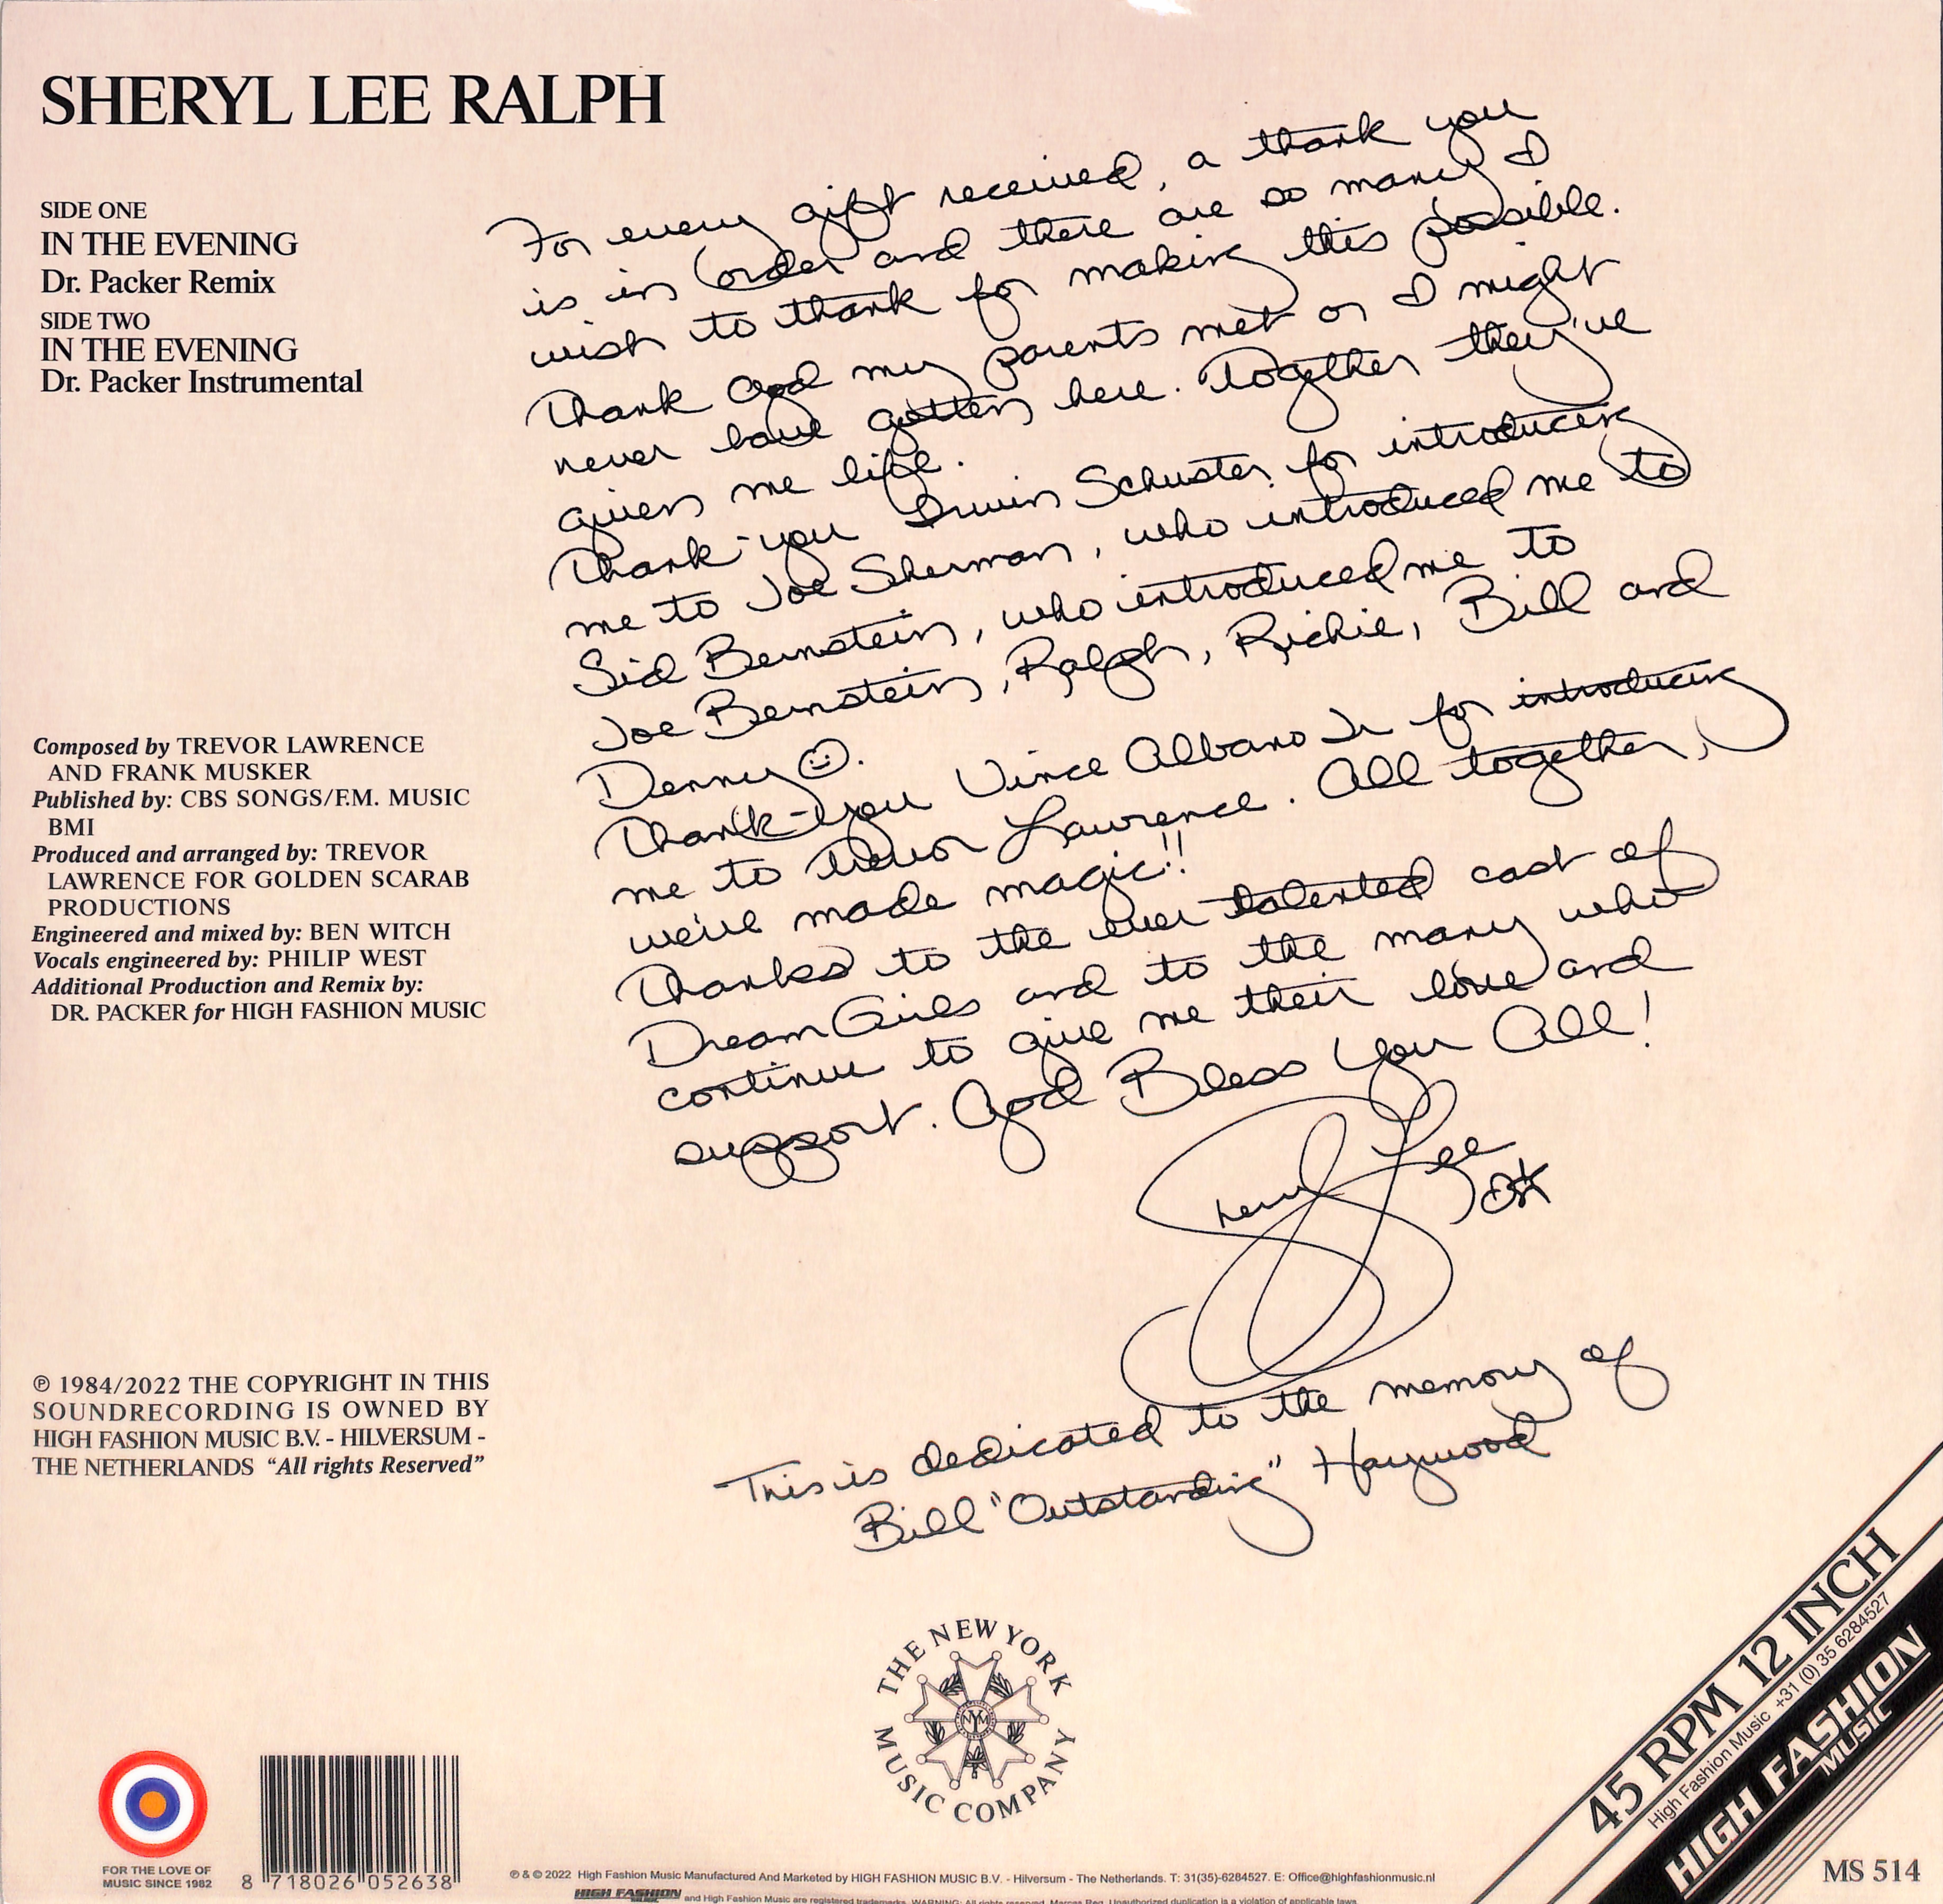 SHERYL LEE RALPH
SIDE ONE
IN THE EVENING
Dr. Packer Remix
SIDE TWO
IN THE EVENING
Dr. Packer Instrumental
For every gift received, a thank you
is in order and there are so many I
wish to thank for making this possible.
Thank God my parents met or I might
never have gotten here. Together they've
given me life.
Thank-you Irwin Schuster for introducing
me to Joe Sherman, who introduced me to
Sid Bernstein, who introduced me to
Joe Bernstein, Ralph, Richie, Bill and
Denny ☺.
Thank-you Vince Albano Jr for introducing
me to Trevor Lawrence. All together,
we've made magic!!
Thanks to the ever talented cast of
DreamGirls and to the many who
continue to give me their love and
support. God Bless You All!
Sheryl Lee
This is dedicated to the memory of
Bill "Outstanding" Haywood
Composed by TREVOR LAWRENCE
AND FRANK MUSKER
Published by: CBS SONGS/F.M. MUSIC
BMI
Produced and arranged by: TREVOR
LAWRENCE FOR GOLDEN SCARAB
PRODUCTIONS
Engineered and mixed by: BEN WITCH
Vocals engineered by: PHILIP WEST
Additional Production and Remix by:
DR. PACKER for HIGH FASHION MUSIC
℗ 1984/2022 THE COPYRIGHT IN THIS
SOUNDRECORDING IS OWNED BY
HIGH FASHION MUSIC B.V. - HILVERSUM -
THE NETHERLANDS "All rights Reserved"
THE NEW YORK
NYM
MUSIC COMPANY
45 RPM 12 INCH
High Fashion Music +31 (0) 35 6284527
HIGH FASHION
MUSIC
MS 514
FOR THE LOVE OF
MUSIC SINCE 1982
8 718026 052638
℗ & © 2022 High Fashion Music Manufactured And Marketed by HIGH FASHION MUSIC B.V. - Hilversum - The Netherlands. T: 31(35)-6284527. E: Office@highfashionmusic.nl
HIGH FASHION MUSIC and High Fashion Music are registered trademarks. WARNING: All rights reserved. Unauthorized duplication is a violation of applicable laws.